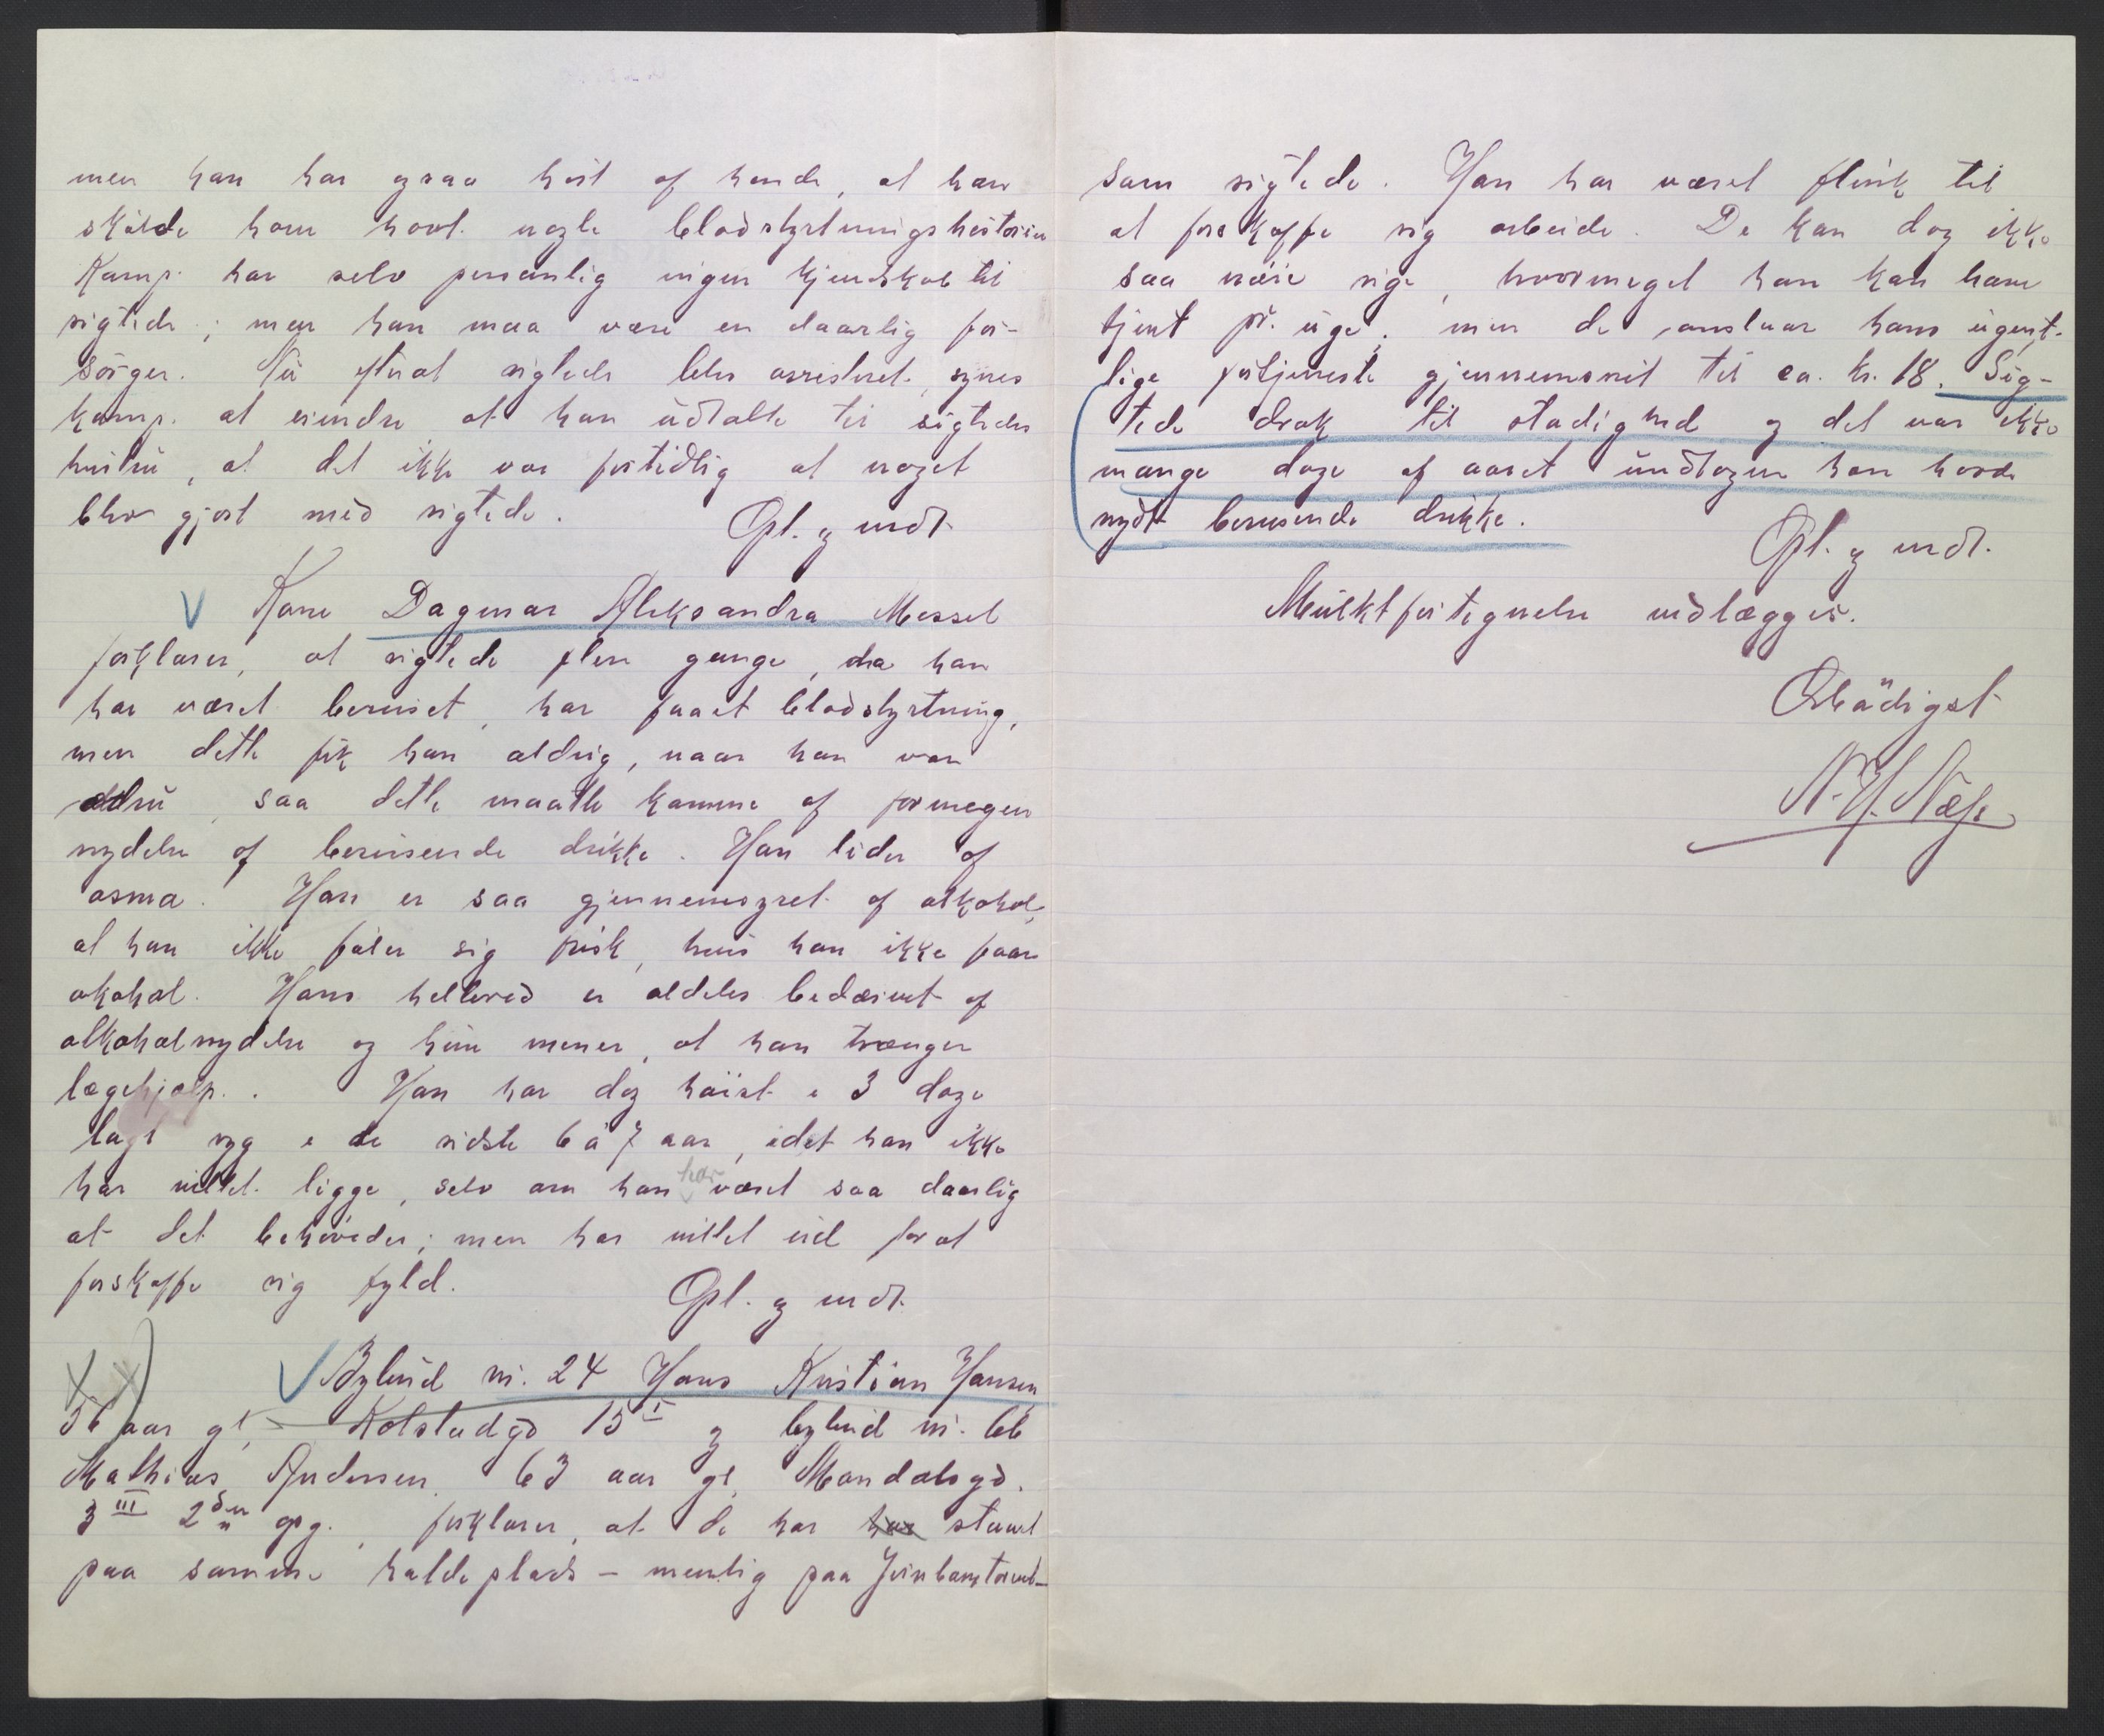 men han har ogsaa hørt af hende, at han
skulde have havt nogle blodstyrtningshistorier
Komp. har selv personlig ingen kjendskab til
sigtede; men han maa være en daarlig for-
sørger. Nu efterat sigtede blev arresteret, synes
komp. at erindre at han udtalte til sigtedes
hustru, at det ikke var fortidlig at noget
blev gjort med sigtede.
Opl. og vedt.
Kone Dagmar Aleksandra Messel
forklarer, at sigtede flere gange, da han
har været beruset, har faaet blodstyrtning,
men dette fik han aldrig, naar han var
ædru, saa dette maatte komme af formegen
nydelse af berusende drikke. Han lider af
asma. Han er saa gjennemsyret af alkohol,
at han ikke føler sig frisk, hvis han ikke faar
akohol. Hans helbred er aldeles bedærvet af
alkoholnydelse og hun mener, at han trænger
lægehjælp. Han har dog høist i 3 dage
lagt syg i de sidste 6 à 7 aar, idet han ikke
har villet ligge, selv om han har været saa daarlig
at det behøvedes; men har villet ud for at
forskaffe sig fyld.
Opl. og vedt.
Bybud nr. 24 Hans Kristian Hansen
56 aar gl, Kolstadgd 15 I og bybud nr. 66
Mathias Andersen, 63 aar gl, Mandalsgd.
3 III 2den opg., forklarer, at de har har staaet
paa samme holdeplads – nemlig paa Jernbanetorvet –
som sigtede. Han har været flink til
at forskaffe sig arbeide. De kan dog ikke
saa nøie sige, hvormeget han kan have
tjent pr. uge; men de anslaar hans ugent-
lige fortjeneste gjennemsnit til ca. kr. 18. Sig-
tede drak til stadighed og det var ikke
mange dage af aaret undtagen han havde
nydt berusende drikke.
Opl. og vedt.
Mulktfortegnelse vedlægges.
Ærbødigst
N. H. Næss